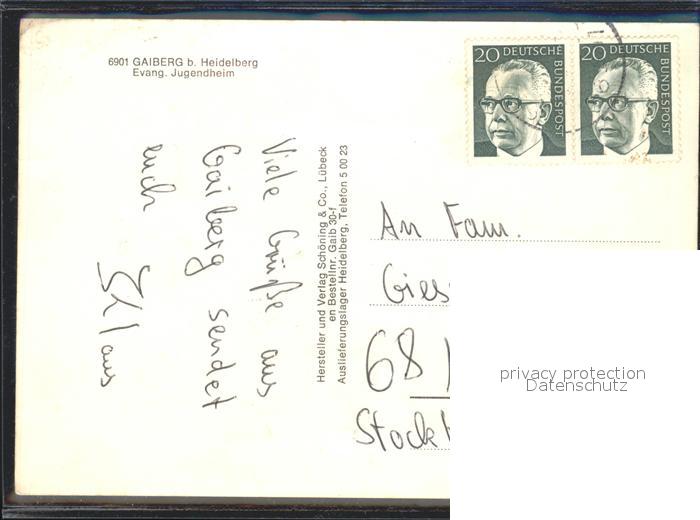 6901 GAIBERG b. Heidelberg
Evang. Jugendheim
20 DEUTSCHE BUNDESPOST
20 DEUTSCHE BUNDESPOST
Viele Grüße aus
Gaiberg sendet
euch
Klaus
Hersteller und Verlag Schöning & Co., Lübeck
en Bestellnr. Gaib 30-f
Auslieferungslager Heidelberg, Telefon 5 00 23
An Fam.
Gies
68
Stock
privacy protection
Datenschutz